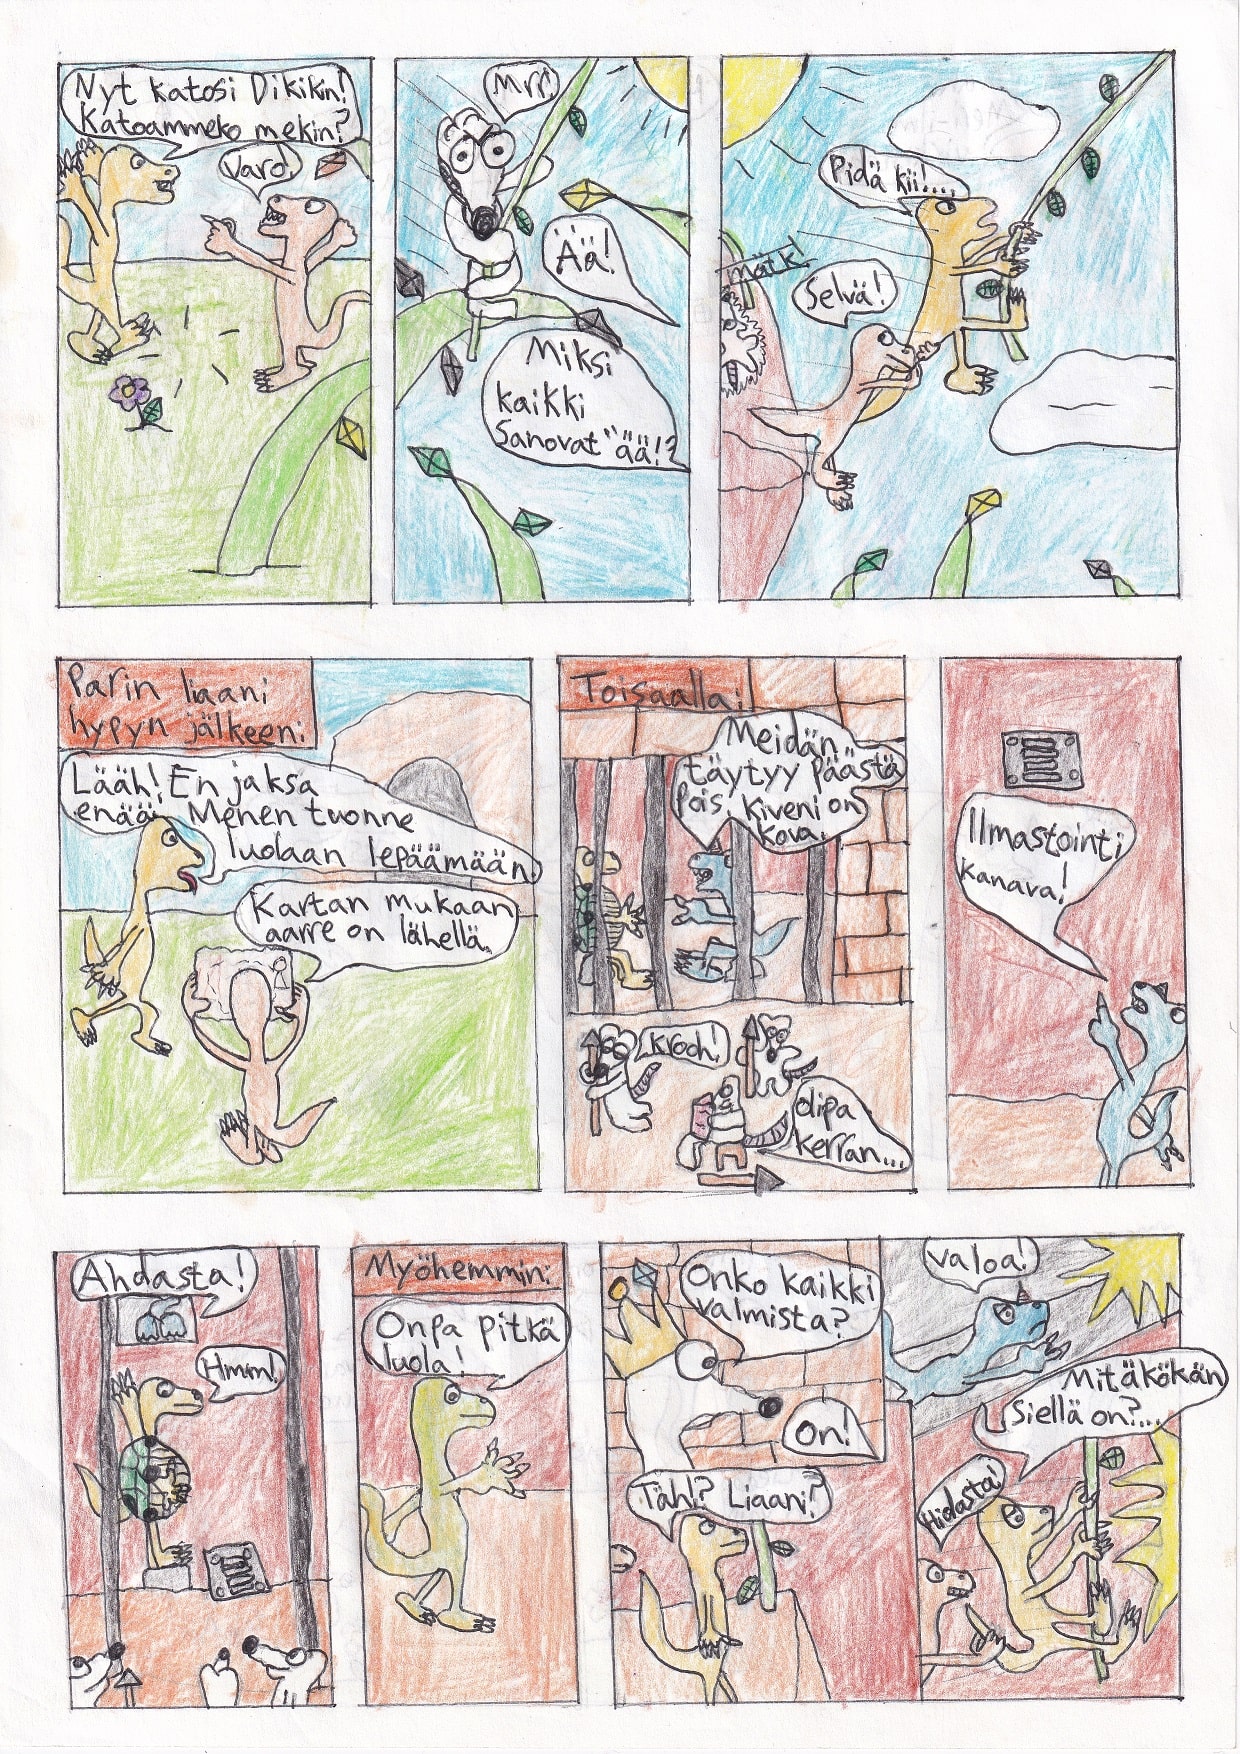 Nyt katosi Dikikin!
Katoammeko mekin?
Varo.
Mrr!
Ää!
Miksi
kaikki
sanovat "ää!?
Pidä kii!....
mätk!
Selvä!
Parin liaani
hypyn jälkeen:
Lääh! En jaksa
enää. Menen tuonne
luolaan lepäämään.
Kartan mukaan
aarre on lähellä.
Toisaalla:
Meidän
täytyy päästä
pois. Kiveni on
kova.
Krooh!
Olipa
kerran...
Ilmastointi
kanava!
Ahdasta!
Hmm!
Myöhemmin:
Onpa pitkä
luola!
Onko kaikki
valmista?
On!
Täh? Liaani?
Valoa!
Mitäkökän
siellä on?...
Hidasta!